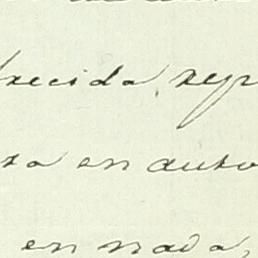 recida, rep
za en auto
en nada,